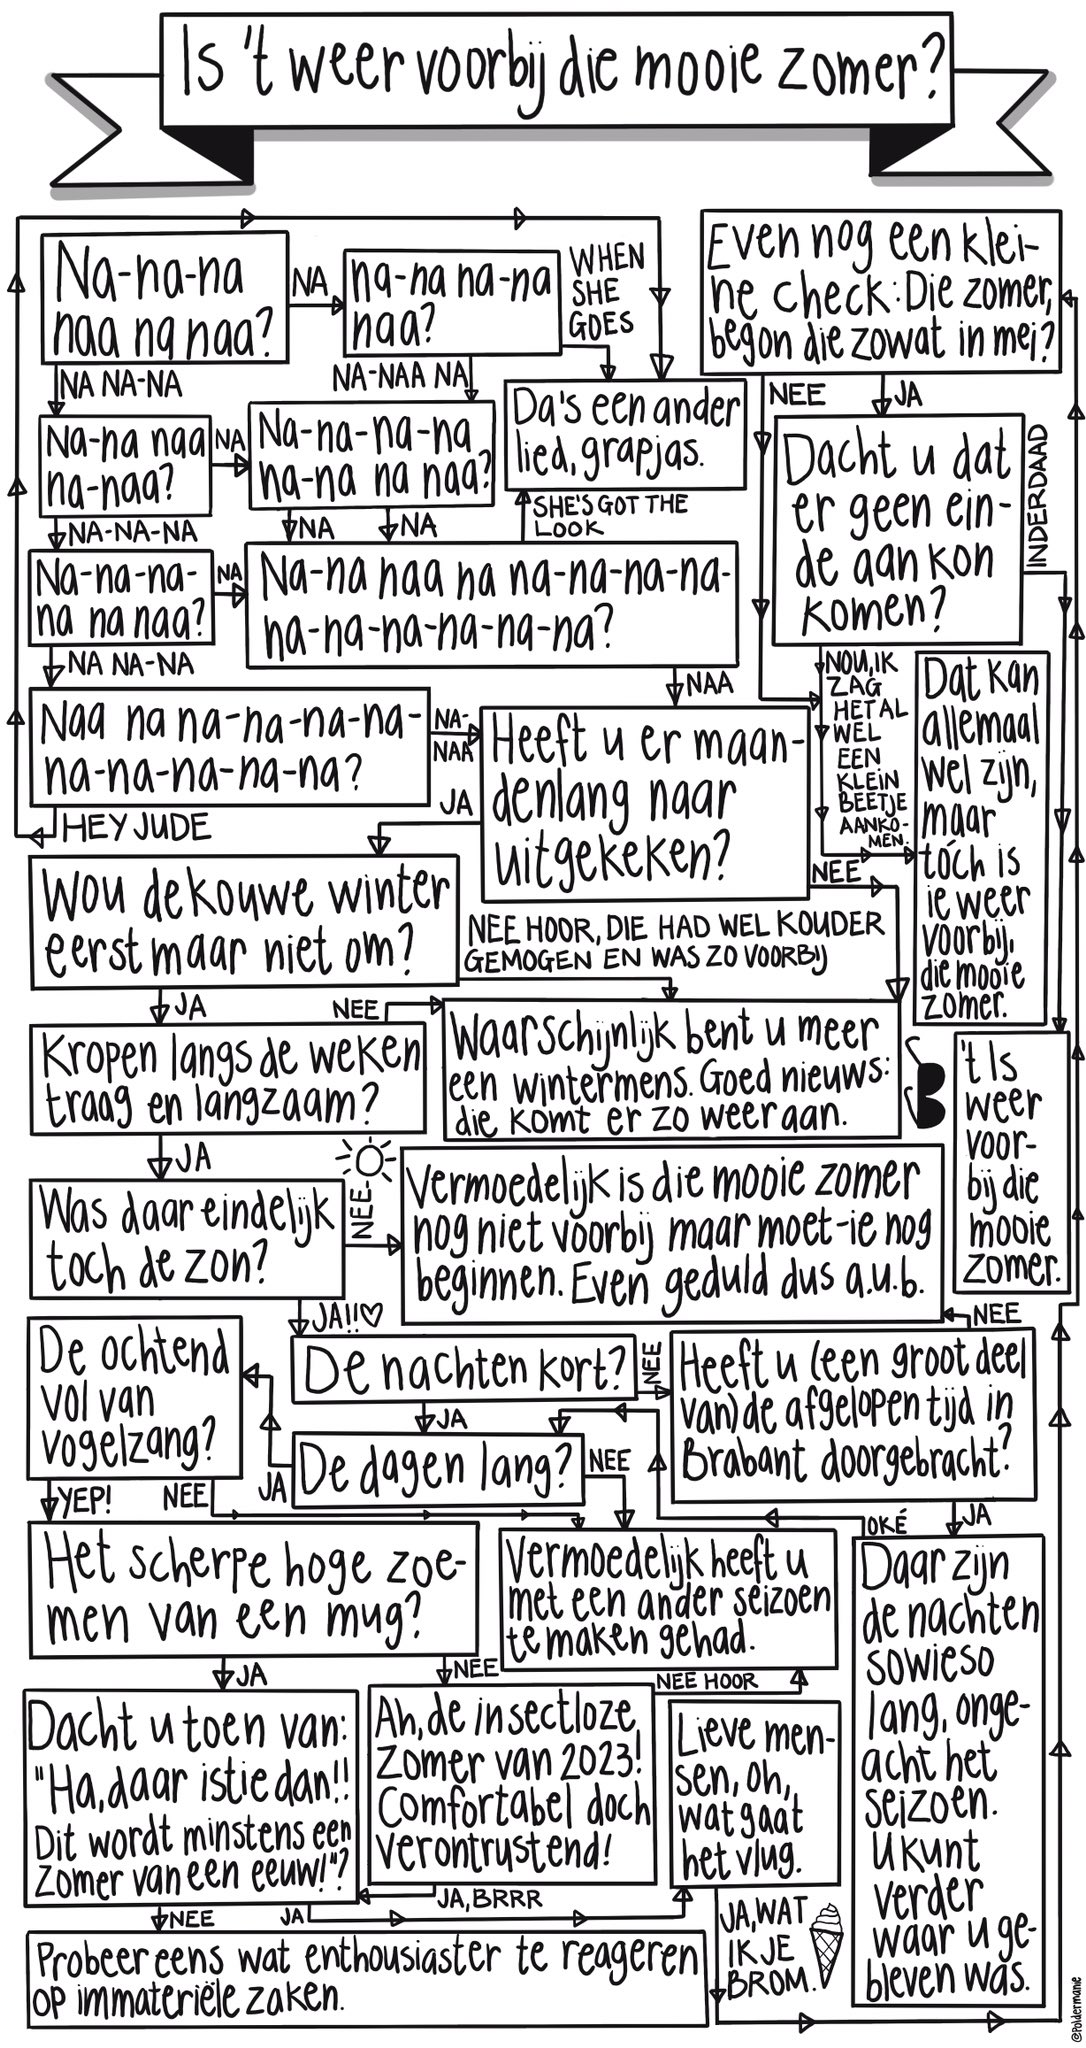 Is 't weer voorbij die mooie zomer?
Na-na-na
naa na naa?
NA
na-na na-na
naa?
WHEN
SHE
GOES
NA NA-NA
NA-NAA NA
Na-na naa
na-naa?
NA
Na-na-na-na
na-na na naa?
Da's een ander
lied, grapjas.
NA-NA-NA
NA
NA
SHE'S GOT THE
LOOK
Na-na-na-
na na naa?
NA
Na-na naa na na-na-na-na-
na-na-na-na-na-na?
NA NA-NA
NAA
Naa na na-na-na-na-
na-na-na-na-na?
NA-
NAA
HEY JUDE
Heeft u er maan-
denlang naar
uitgekeken?
JA
NEE
Wou de kouwe winter
eerst maar niet om?
NEE HOOR, DIE HAD WEL KOUDER
GEMOGEN EN WAS ZO VOORBIJ
JA
NEE
Kropen langs de weken
traag en langzaam?
Waarschijnlijk bent u meer
een wintermens. Goed nieuws:
die komt er zo weer aan.
JA
Was daar eindelijk
toch de zon?
NEE
Vermoedelijk is die mooie zomer
nog niet voorbij maar moet-ie nog
beginnen. Even geduld dus a.u.b.
JA!!♡
De nachten kort?
NEE
JA
De dagen lang?
JA
NEE
De ochtend
vol van
vogelzang?
YEP!
NEE
Het scherpe hoge zoe-
men van een mug?
Vermoedelijk heeft u
met een ander seizoen
te maken gehad.
JA
NEE
NEE HOOR
Dacht u toen van:
"Ha, daar istie dan!!
Dit wordt minstens een
zomer van een eeuw!"?
Ah, de insectloze
zomer van 2023!
Comfortabel doch
verontrustend!
JA, BRRR
NEE
JA
Probeer eens wat enthousiaster te reageren
op immateriële zaken.
Lieve men-
sen, oh,
wat gaat
het vlug.
JA, WAT
IK JE
BROM.
Even nog een klei-
ne check: Die zomer,
begon die zowat in mei?
NEE
JA
Dacht u dat
er geen ein-
de aan kon
komen?
INDERDAAD
NOU, IK
ZAG
HET AL
WEL
EEN
KLEIN
BEETJE
AANKO-
MEN.
Dat kan
allemaal
wel zijn,
maar
tóch is
ie weer
voorbij,
die mooie
zomer.
't Is
weer
voor-
bij die
mooie
zomer.
NEE
Heeft u (een groot deel
van) de afgelopen tijd in
Brabant doorgebracht?
OKÉ
JA
Daar zijn
de nachten
sowieso
lang, onge-
acht het
seizoen.
U kunt
verder
waar u ge-
bleven was.
@Poldermanie